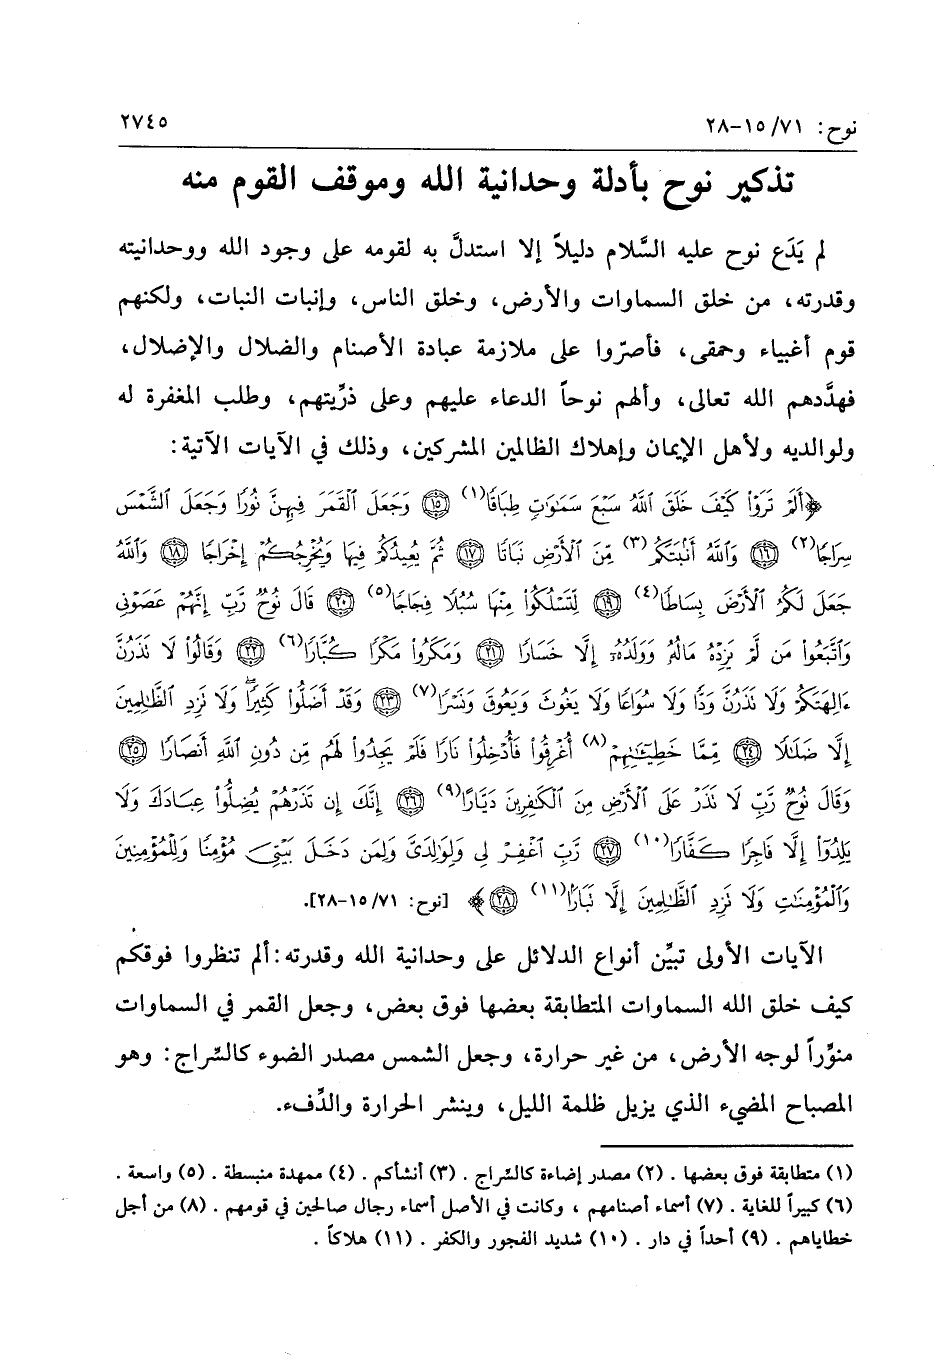 نوح: ٧١/ ١٥-٢٨ ٢٧٤٥
تذكير نوح بأدلة وحدانية الله وموقف القوم منه
لم يَدَع نوح عليه السَّلام دليلاً إلا استدلَّ به لقومه على وجود الله ووحدانيته
وقدرته، من خلق السماوات والأرض، وخلق الناس، وإنبات النبات، ولكنهم
قوم أغبياء وحمقى، فأصرّوا على ملازمة عبادة الأصنام والضلال والإضلال،
فهدَّدهم الله تعالى، وألهم نوحاً الدعاء عليهم وعلى ذرِّيتهم، وطلب المغفرة له
ولوالديه ولأهل الإيمان وإهلاك الظالمين المشركين، وذلك في الآيات الآتية:
﴿أَلَمْ تَرَوْا كَيْفَ خَلَقَ اللَّهُ سَبْعَ سَمَٰوَٰتٍ طِبَاقًا(١) ١٥ وَجَعَلَ الْقَمَرَ فِيهِنَّ نُورًا وَجَعَلَ الشَّمْسَ
سِرَاجًا(٢) ١٦ وَاللَّهُ أَنْبَتَكُم(٣) مِّنَ الْأَرْضِ نَبَاتًا ١٧ ثُمَّ يُعِيدُكُمْ فِيهَا وَيُخْرِجُكُمْ إِخْرَاجًا ١٨ وَاللَّهُ
جَعَلَ لَكُمُ الْأَرْضَ بِسَاطًا(٤) ١٩ لِّتَسْلُكُوا مِنْهَا سُبُلًا فِجَاجًا(٥) ٢٠ قَالَ نُوحٌ رَّبِّ إِنَّهُمْ عَصَوْنِي
وَاتَّبَعُوا مَن لَّمْ يَزِدْهُ مَالُهُ وَوَلَدُهُ إِلَّا خَسَارًا ٢١ وَمَكَرُوا مَكْرًا كُبَّارًا(٦) ٢٢ وَقَالُوا لَا تَذَرُنَّ
ءَالِهَتَكُمْ وَلَا تَذَرُنَّ وَدًّا وَلَا سُوَاعًا وَلَا يَغُوثَ وَيَعُوقَ وَنَسْرًا(٧) ٢٣ وَقَدْ أَضَلُّوا كَثِيرًا وَلَا تَزِدِ الظَّالِمِينَ
إِلَّا ضَلَالًا ٢٤ مِّمَّا خَطِيٓـَٰٔتِهِمْ(٨) أُغْرِقُوا فَأُدْخِلُوا نَارًا فَلَمْ يَجِدُوا لَهُم مِّن دُونِ اللَّهِ أَنصَارًا ٢٥
وَقَالَ نُوحٌ رَّبِّ لَا تَذَرْ عَلَى الْأَرْضِ مِنَ الْكَٰفِرِينَ دَيَّارًا(٩) ٢٦ إِنَّكَ إِن تَذَرْهُمْ يُضِلُّوا عِبَادَكَ وَلَا
يَلِدُوا إِلَّا فَاجِرًا كَفَّارًا(١٠) ٢٧ رَّبِّ اغْفِرْ لِي وَلِوَٰلِدَيَّ وَلِمَن دَخَلَ بَيْتِيَ مُؤْمِنًا وَلِلْمُؤْمِنِينَ
وَالْمُؤْمِنَٰتِ وَلَا تَزِدِ الظَّالِمِينَ إِلَّا تَبَارًا(١١) ٢٨﴾ [نوح: ٧١/ ١٥-٢٨].
الآيات الأولى تبيِّن أنواع الدلائل على وحدانية الله وقدرته: ألم تنظروا فوقكم
كيف خلق الله السماوات المتطابقة بعضها فوق بعض، وجعل القمر في السماوات
منوِّراً لوجه الأرض، من غير حرارة، وجعل الشمس مصدر الضوء كالسِّراج: وهو
المصباح المضيء الذي يزيل ظلمة الليل، وينشر الحرارة والدِّفء.
(١) متطابقة فوق بعضها . (٢) مصدر إضاءة كالسِّراج . (٣) أنشأكم . (٤) ممهدة منبسطة . (٥) واسعة .
(٦) كبيراً للغاية . (٧) أسماء أصنامهم ، وكانت في الأصل أسماء رجال صالحين في قومهم . (٨) من أجل
خطاياهم . (٩) أحداً في دار . (١٠) شديد الفجور والكفر . (١١) هلاكاً .